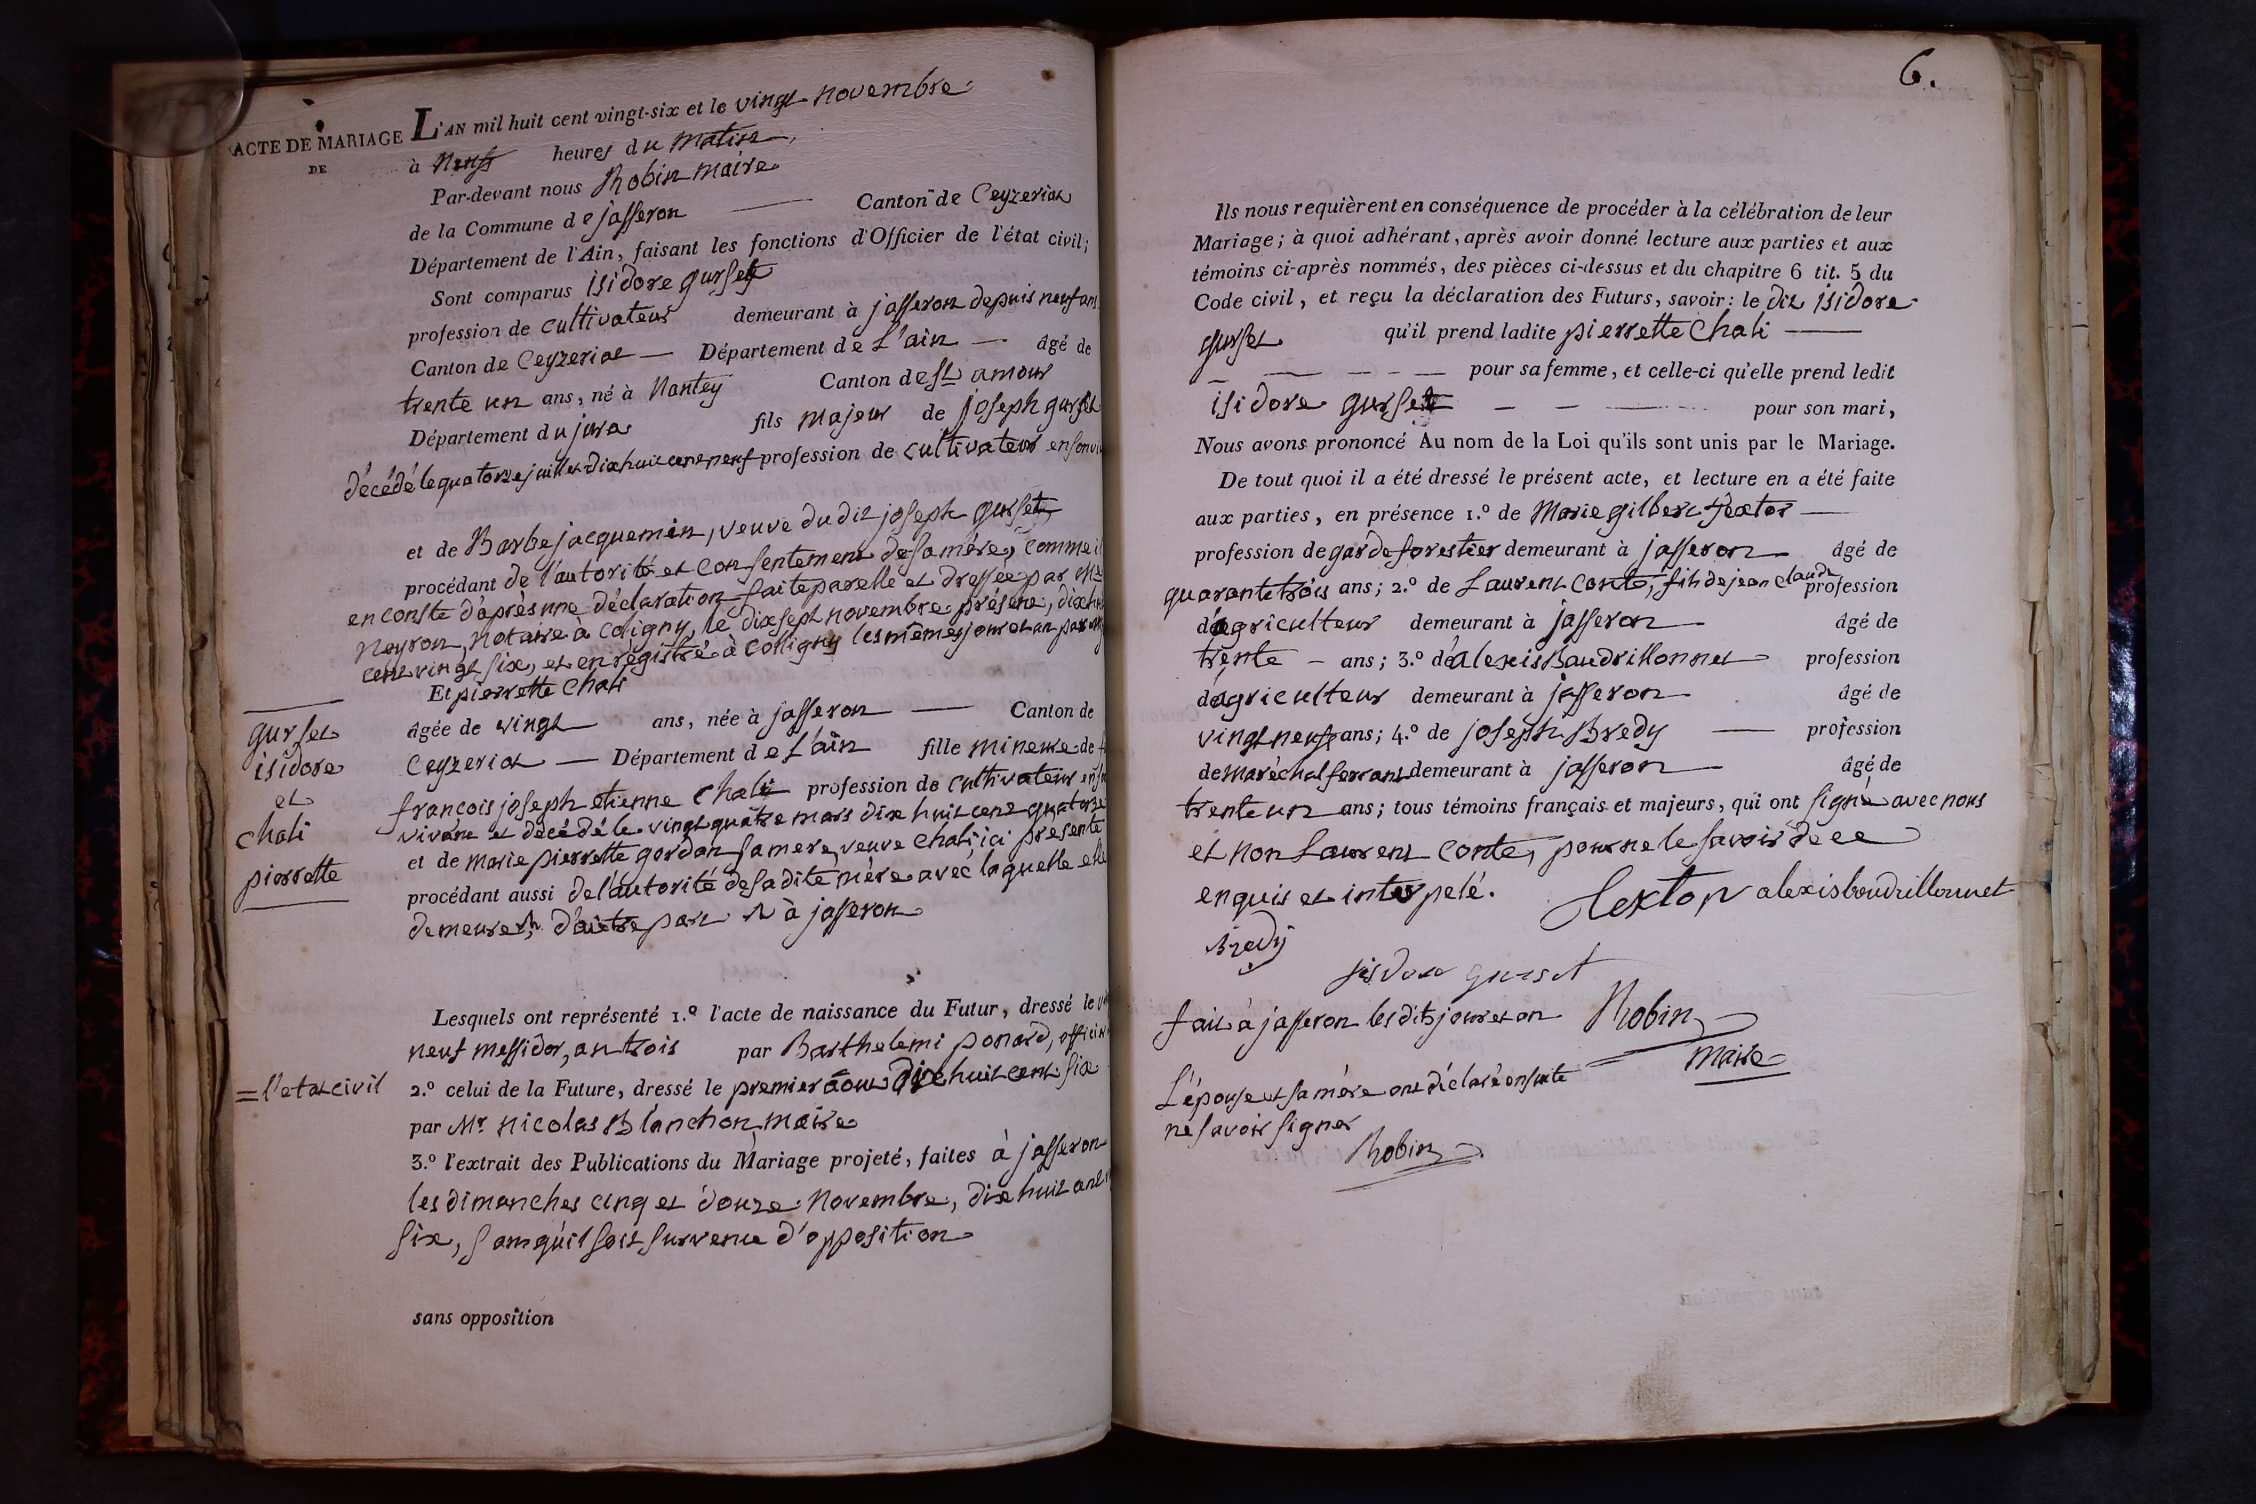 ACTE DE MARIAGE
DE
L'AN mil huit cent vingt-six et le vingt novembre
à neuf heures du matin,
Par-devant nous Robin maire
de la Commune de jasseron Canton de Ceyzeriat
Département de l'Ain, faisant les fonctions d'Officier de l'état civil;
Sont comparus isidore gurset
profession de cultivateur demeurant à jasseron depuis neuf ans
Canton de Ceyzeriat Département de L'ain âgé de
trente un ans, né à Nantey Canton de st amour
Département du jura fils majeur de joseph gurset
décédé le quatorze juillet dix huit cent neuf profession de cultivateur en son
et de Barbe jacquemin, veuve du dit joseph gurset
procédant de l'autorité et consentement de sa mére, comme il
en conste d'après une déclaration faite par elle et dressée par Me
neyron, notaire à coligny, le dix sept novembre présent, dix
cent vingt six, et enrégistré à colligny les mêmes jour et an par
Et pierrette Chati
âgée de vingt ans, née à jasseron Canton de
Ceyzeriat Département de L'ain fille mineure de
francois joseph etienne Chati profession de cultivateur en
vivant et décédé le vingt quatre mars dix huit cent quatorze
et de marie pierrette gordan sa mere, veuve Chati, ici presente
procédant aussi de l'autorité de sa dite mére avec laquelle elle
demeure, d'autre part à jasseron
gurset
isidore
et
chati
pierrette
Lesquels ont représenté 1.º l'acte de naissance du Futur, dressé le
neuf messidor, an trois par Barthelemi ponard, officier
= l'etat civil
2.º celui de la Future, dressé le premier aout dix huit cent six
par Mr nicolas Blanchon maire
3.º l'extrait des Publications du Mariage projeté, faites à jasseron
les dimanches cinq et douze novembre, dix huit cent
six, sans qu'il soit survenu d'opposition
sans opposition
6.
Ils nous requièrent en conséquence de procéder à la célébration de leur
Mariage; à quoi adhérant, après avoir donné lecture aux parties et aux
témoins ci-après nommés, des pièces ci-dessus et du chapitre 6 tit. 5 du
Code civil, et reçu la déclaration des Futurs, savoir: le dit isidore
gurset qu'il prend ladite pierrette Chati
pour sa femme, et celle-ci qu'elle prend ledit
isidore gurset pour son mari,
Nous avons prononcé Au nom de la Loi qu'ils sont unis par le Mariage.
De tout quoi il a été dressé le présent acte, et lecture en a été faite
aux parties, en présence 1.º de Marie gilbert
profession de garde forestier demeurant à jasseron âgé de
quarante trois ans; 2.º de Laurent conte, fils de jean claude profession
d'agriculteur demeurant à jasseron âgé de
trente ans; 3.º d'alexis Baudrillonnet profession
d'agriculteur demeurant à jasseron âgé de
vingt neuf ans; 4.º de joseph Bredy profession
de maréchal ferrant demeurant à jasseron âgé de
trente un ans; tous témoins français et majeurs, qui ont signé avec nous
et non Laurent conte, pour ne le savoir de ce
enquis et interpelé.
alexis boudrillonnet
Bredy
isidore gurset
fait à jasseron les dits jour et an Robin
maire
L'épouse et sa mére ont déclaré ensuite
ne savoir signer
Robin